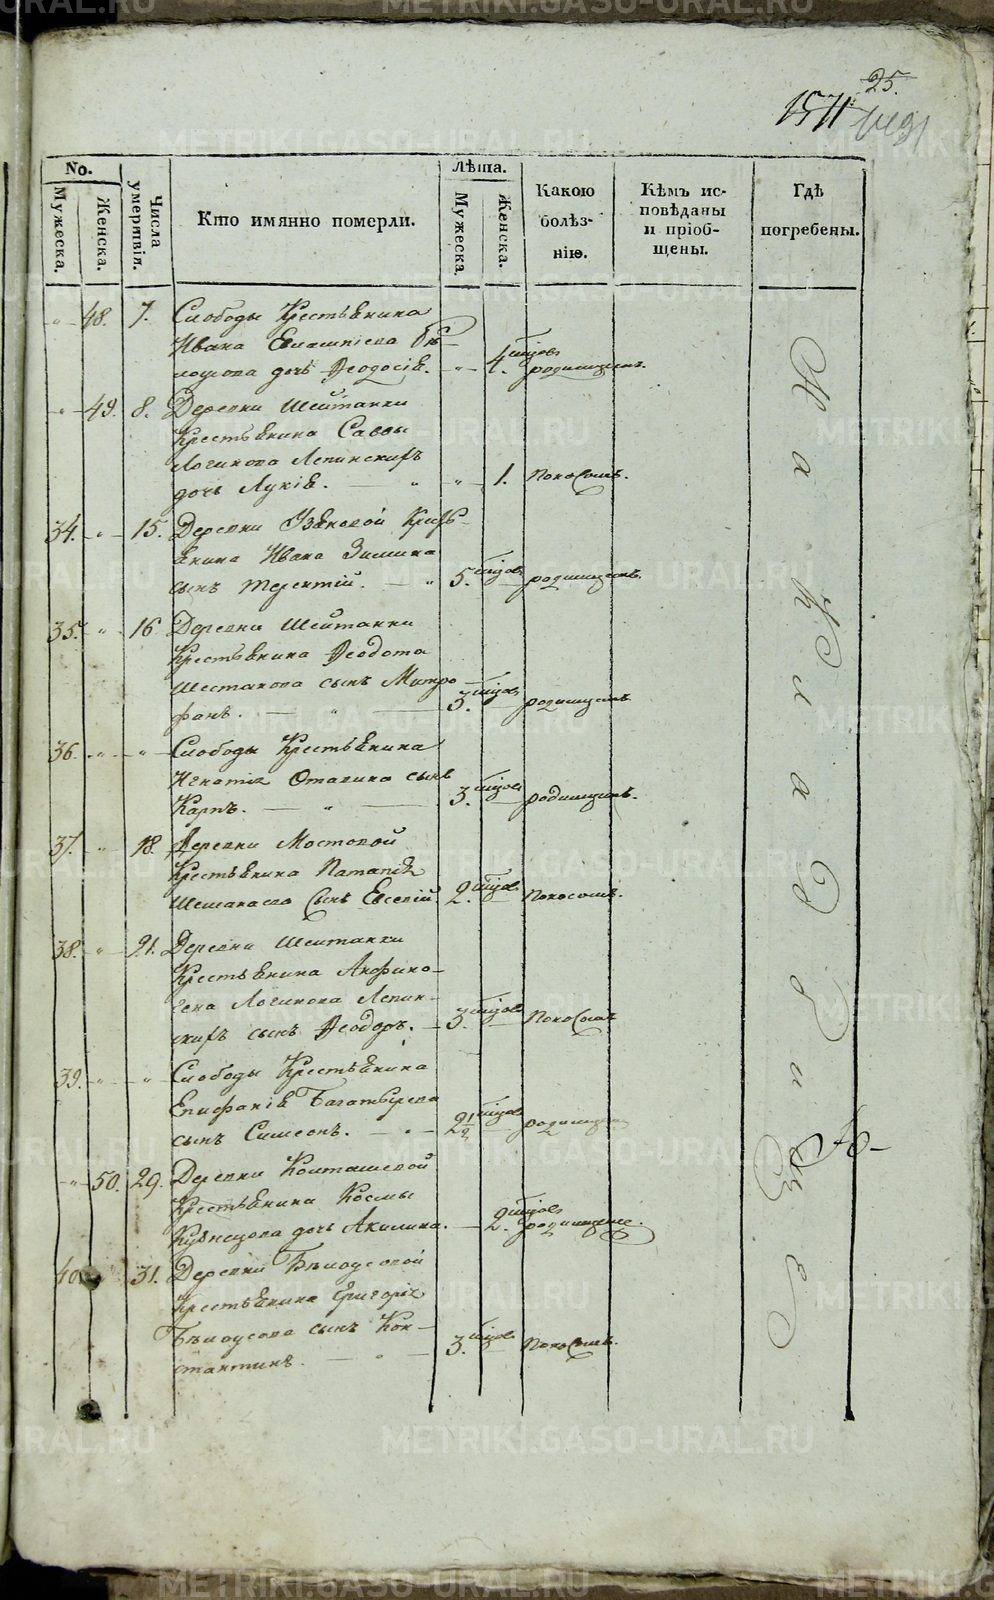 25.
1571
No.
Мужеска.
Женска.
Числа умертвія.
Кто имянно померли.
Лѣта.
Мужеска.
Женска.
Какою болѣз-
нію.
Кѣмъ ис-
повѣданы
и пріоб-
щены.
Гдѣ
погребены.
„ 48. 7. Слободы Крестьянина
Ивана
дочь Ѳеодосія. „ 4. родимцемъ.
„ 49. 8. Деревни Шейтанки
Крестьянина Саввы
Логинова Лепинскихъ
дочь Лукія. „ „ 1. поносомъ.
34. „ 15. Деревни Узяновой Кресть-
янина Ивана Зимина
сынъ Терентій. „ 5. родимцемъ.
35. „ 16 Деревни Шейтанки
Крестьянина Ѳеодота
Шестакова сынъ Митро
фанъ. „ 3. родимцемъ
36. „ „ Слободы Крестьянина
Игнатія сынъ
Карпъ. „ 3. родимцемъ.
37. „ 18. Деревни Мостовой
Крестьянина
сынъ Евсевій. 2. поносомъ.
38. „ 21. Деревни Шейтанки
Крестьянина Анфино-
гена Логинова Лепин-
скихъ сынъ Ѳеодоръ. 3. поносомъ
39. „ „ Слободы Крестьянина
Епифанія Багатырева
сынъ Симеонъ. „ 2½ родимцемъ
„ 50. 29. Деревни
Крестьянина Космы
Кузнецова дочь Акилина. 2. родимцемъ.
40. 31. Деревни Бѣлоусовой
Крестьянина Григорія
Бѣлоусова сынъ Кон-
стантинъ. „ 3. поносомъ.
На Кладбище
METRIKI.GASO-URAL.RU